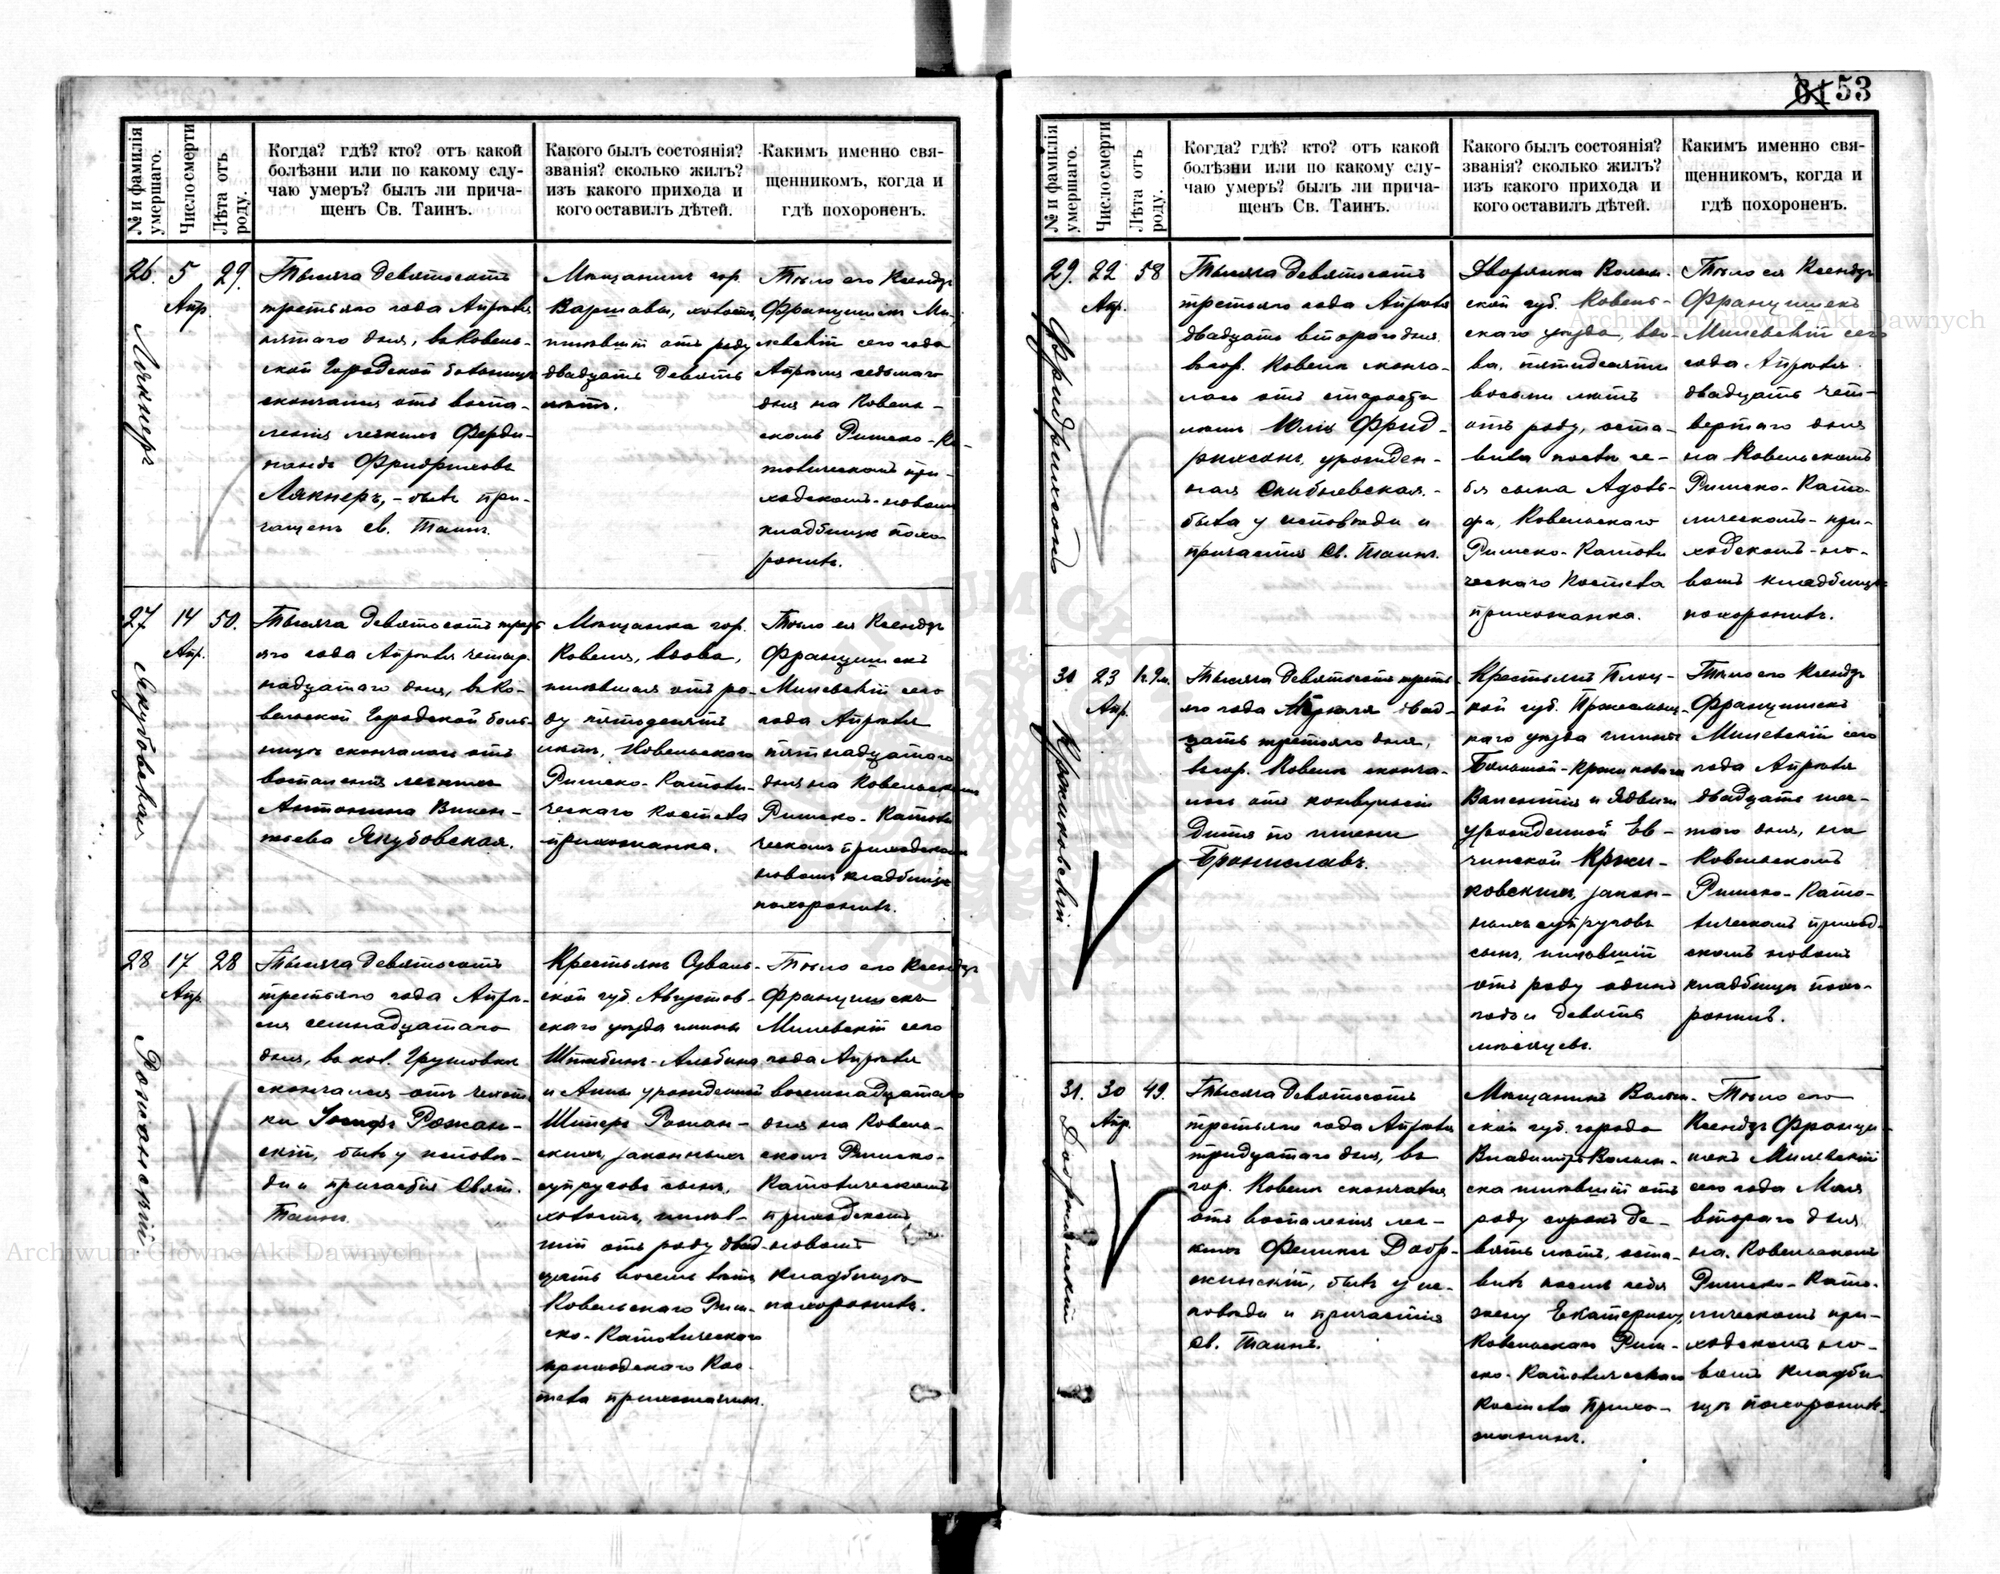 53
№ и фамилія умершаго.
Число смерти
Лѣта отъ роду.
Когда? гдѣ? кто? отъ какой
болѣзни или по какому слу-
чаю умеръ? былъ ли прича-
щенъ Св. Таинъ.
Какого былъ состоянія?
званія? сколько жилъ?
изъ какого прихода и
кого оставилъ дѣтей.
Какимъ именно свя-
щенникомъ, когда и
гдѣ похороненъ.
26.
Лякнеръ
5
Апр.
29.
Тысяча девятьсотъ
третьяго года Апрѣля
пятаго дня, въ Ковель-
ской Городской больницѣ
скончался отъ воспа-
ленія легкихъ Ферди-
нандъ Фридриховъ
Лякнеръ, - былъ при-
чащенъ св. Таинъ.
Мѣщанинъ гор.
Варшавы, холостъ,
жившій отъ роду
двадцать девять
лѣтъ.
Тѣло его Ксендзъ
Францишекъ Ми-
левскій сего года
Апрѣля седьмаго
дня на Ковель-
скомъ Римско-Ка-
толическомъ при-
ходскомъ-новомъ
кладбищѣ похо-
ронилъ.
27
Якубовская
14
Апр.
50.
Тысяча девятьсотъ треть-
яго года Апрѣля четыр-
надцатаго дня, въ Ко-
вельской Городской боль-
ницѣ скончалась отъ
воспаленія легкихъ
Антонина Викен-
тьева Якубовская.
Мѣщанка гор.
Ковеля, вдова,
жившая отъ ро-
ду пятьдесятъ
лѣтъ, Ковельскаго
Римско-Католи-
ческаго Костела
прихожанка.
Тѣло ея Ксендзъ
Францишекъ
Милевскій сего
года Апрѣля
пятнадцатаго
дня на Ковельскомъ
Римско-Католи
ческомъ приходскомъ
новомъ кладбищѣ
похоронилъ.
28
Рожанскій
17
Апр.
28
Тысяча девятьсотъ
третьяго года Апрѣ-
ля семнадцатаго
дня, въ кол. Грушовкѣ
скончался отъ чахот-
ки Іосифъ Рожан-
скій, былъ у исповѣ-
ди и причастія Свят.
Таинъ.
Крестьянъ Суваль-
ской губ. Августов-
скаго уѣзда гмины
Штабинъ-Альбина
и Анны урожденной
Рожан-
скихъ, законныхъ
супруговъ сынъ,
холостъ, жив-
шій отъ роду двад-
цать восемь лѣтъ
Ковельскаго Рим-
ско-Католическаго
приходскаго Кос-
тела прихожанинъ.
Тѣло его Ксендзъ
Францишекъ
Милевскій сего
года Апрѣля
восемнадцатаго
дня на Ковель-
скомъ Римско-
Католическомъ
приходскомъ
новомъ
кладбищѣ
похоронилъ.
№ и фамилія умершаго.
Число смерти
Лѣта отъ роду.
Когда? гдѣ? кто? отъ какой
болѣзни или по какому слу-
чаю умеръ? былъ ли прича-
щенъ Св. Таинъ.
Какого былъ состоянія?
званія? сколько жилъ?
изъ какого прихода и
кого оставилъ дѣтей.
Какимъ именно свя-
щенникомъ, когда и
гдѣ похороненъ.
29.
Фридрихсонъ
22.
Апр.
58
Тысяча девятьсотъ
третьяго года Апрѣля
двадцать втораго дня
въ гор. Ковелѣ сконча-
лась отъ старости
лѣтъ Юлія Фрид-
рихсонъ, урожден-
ная Скибневская. -
была у исповѣди и
причастія Св. Таинъ.
Дворянка Волын-
ской губ. Ковель-
скаго уѣзда, вдо-
ва, пятидесяти
восьми лѣтъ
отъ роду, оста-
вила послѣ се-
бя сына Адоль-
фа, Ковельскаго
Римско-Католи
ческаго Костела
прихожанка.
Тѣло ея Ксендзъ
Францишекъ
Милевскій сего
года Апрѣля
двадцать чет-
вертаго дня
на Ковельскомъ
Римско-Като-
лическомъ-при-
ходскомъ-но-
вомъ кладбищѣ
похоронилъ.
30
Кржиковскій
23
Апр.
1г. 9м.
Тысяча девятьсотъ треть-
яго года Апрѣля двад-
цать третьяго дня,
въ гор. Ковелѣ сконча-
лось отъ конвульсіи
дитя по имени
Брониславъ.
Крестьянъ Плоц-
кой губ. Праснышс-
каго уѣзда гмины
Валентія и Ядвиги
урожденной
Кржи-
ковскихъ, закон-
ныхъ супруговъ
сынъ, жившій
отъ роду одинъ
годъ и девять
мѣсяцевъ.
Тѣло его Ксендзъ
Францишекъ
Милевскій сего
года Апрѣля
двадцать пя-
таго дня, на
Ковельскомъ
Римско-Като-
лическомъ приход-
скомъ новомъ
кладбищѣ похо-
ронилъ.
31.
Добржинскій
30
Апр.
49.
Тысяча девятьсотъ
третьяго года Апрѣля
тридцатаго дня, въ
гор. Ковелѣ скончался
отъ воспаленія лег-
кихъ Феликсъ Добр-
жинскій, былъ у ис-
повѣди и причастія
Св. Таинъ.
Мѣщанинъ Волын-
ской губ. города
Владиміръ Волын-
ска жившій отъ
роду сорокъ де-
вять лѣтъ, оста-
вилъ послѣ себя
жену Екатерину,
Ковельскаго Рим-
ско-Католическаго
Костела прихо-
жанинъ.
Тѣло его
Ксендзъ Францы-
шекъ Милевскій
сего года Мая
втораго дня
на Ковельскомъ
Римско-Като-
лическомъ при-
ходскомъ но-
вомъ кладби-
щѣ похоронилъ.
Archiwum Główne Akt Dawnych
Archiwum Główne Akt Dawnych